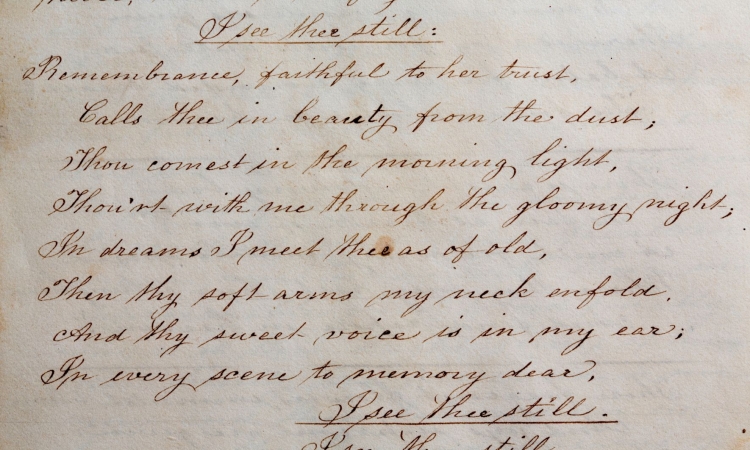 I see thee still:
Remembrance, faithful to her trust,
Calls thee in beauty from the dust;
Thou comest in the morning light,
Thou'rt with me through the gloomy night;
In dreams I meet thee as of old,
Then thy soft arms my neck enfold,
And thy sweet voice is in my ear;
In every scene to memory dear,
I see thee still.
I see thee still